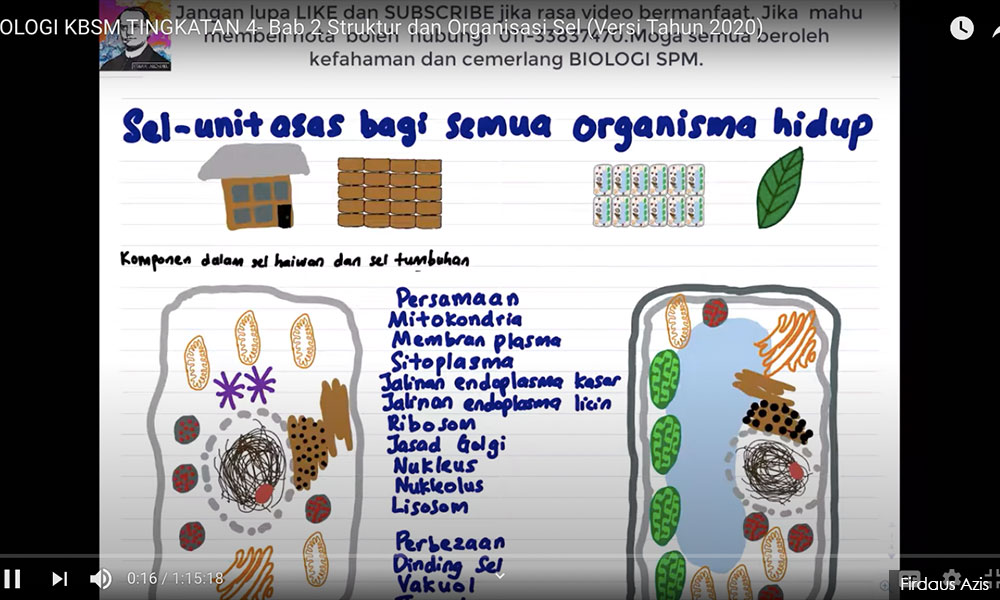 Jangan lupa LIKE dan SUBSCRIBE jika rasa video bermanfaat. Jika mahu
OLOGI KBSM TINGKATAN 4- Bab 2 Struktur dan Organisasi Sel (Versi Tahun 2020)
membeli nota boleh hubungi semua beroleh
kefahaman dan cemerlang BIOLOGI SPM.
Sel-unit asas bagi semua organisma hidup
Komponen dalam sel haiwan dan sel tumbuhan
Persamaan
Mitokondria
Membran plasma
Sitoplasma
Jalinan endoplasma kasar
Jalinan endoplasma licin
Ribosom
Jasad Golgi
Nukleus
Nukleolus
Lisosom
Perbezaan
Dinding Sel
Vakuol
0:16 / 1:15:18
Firdaus Azis